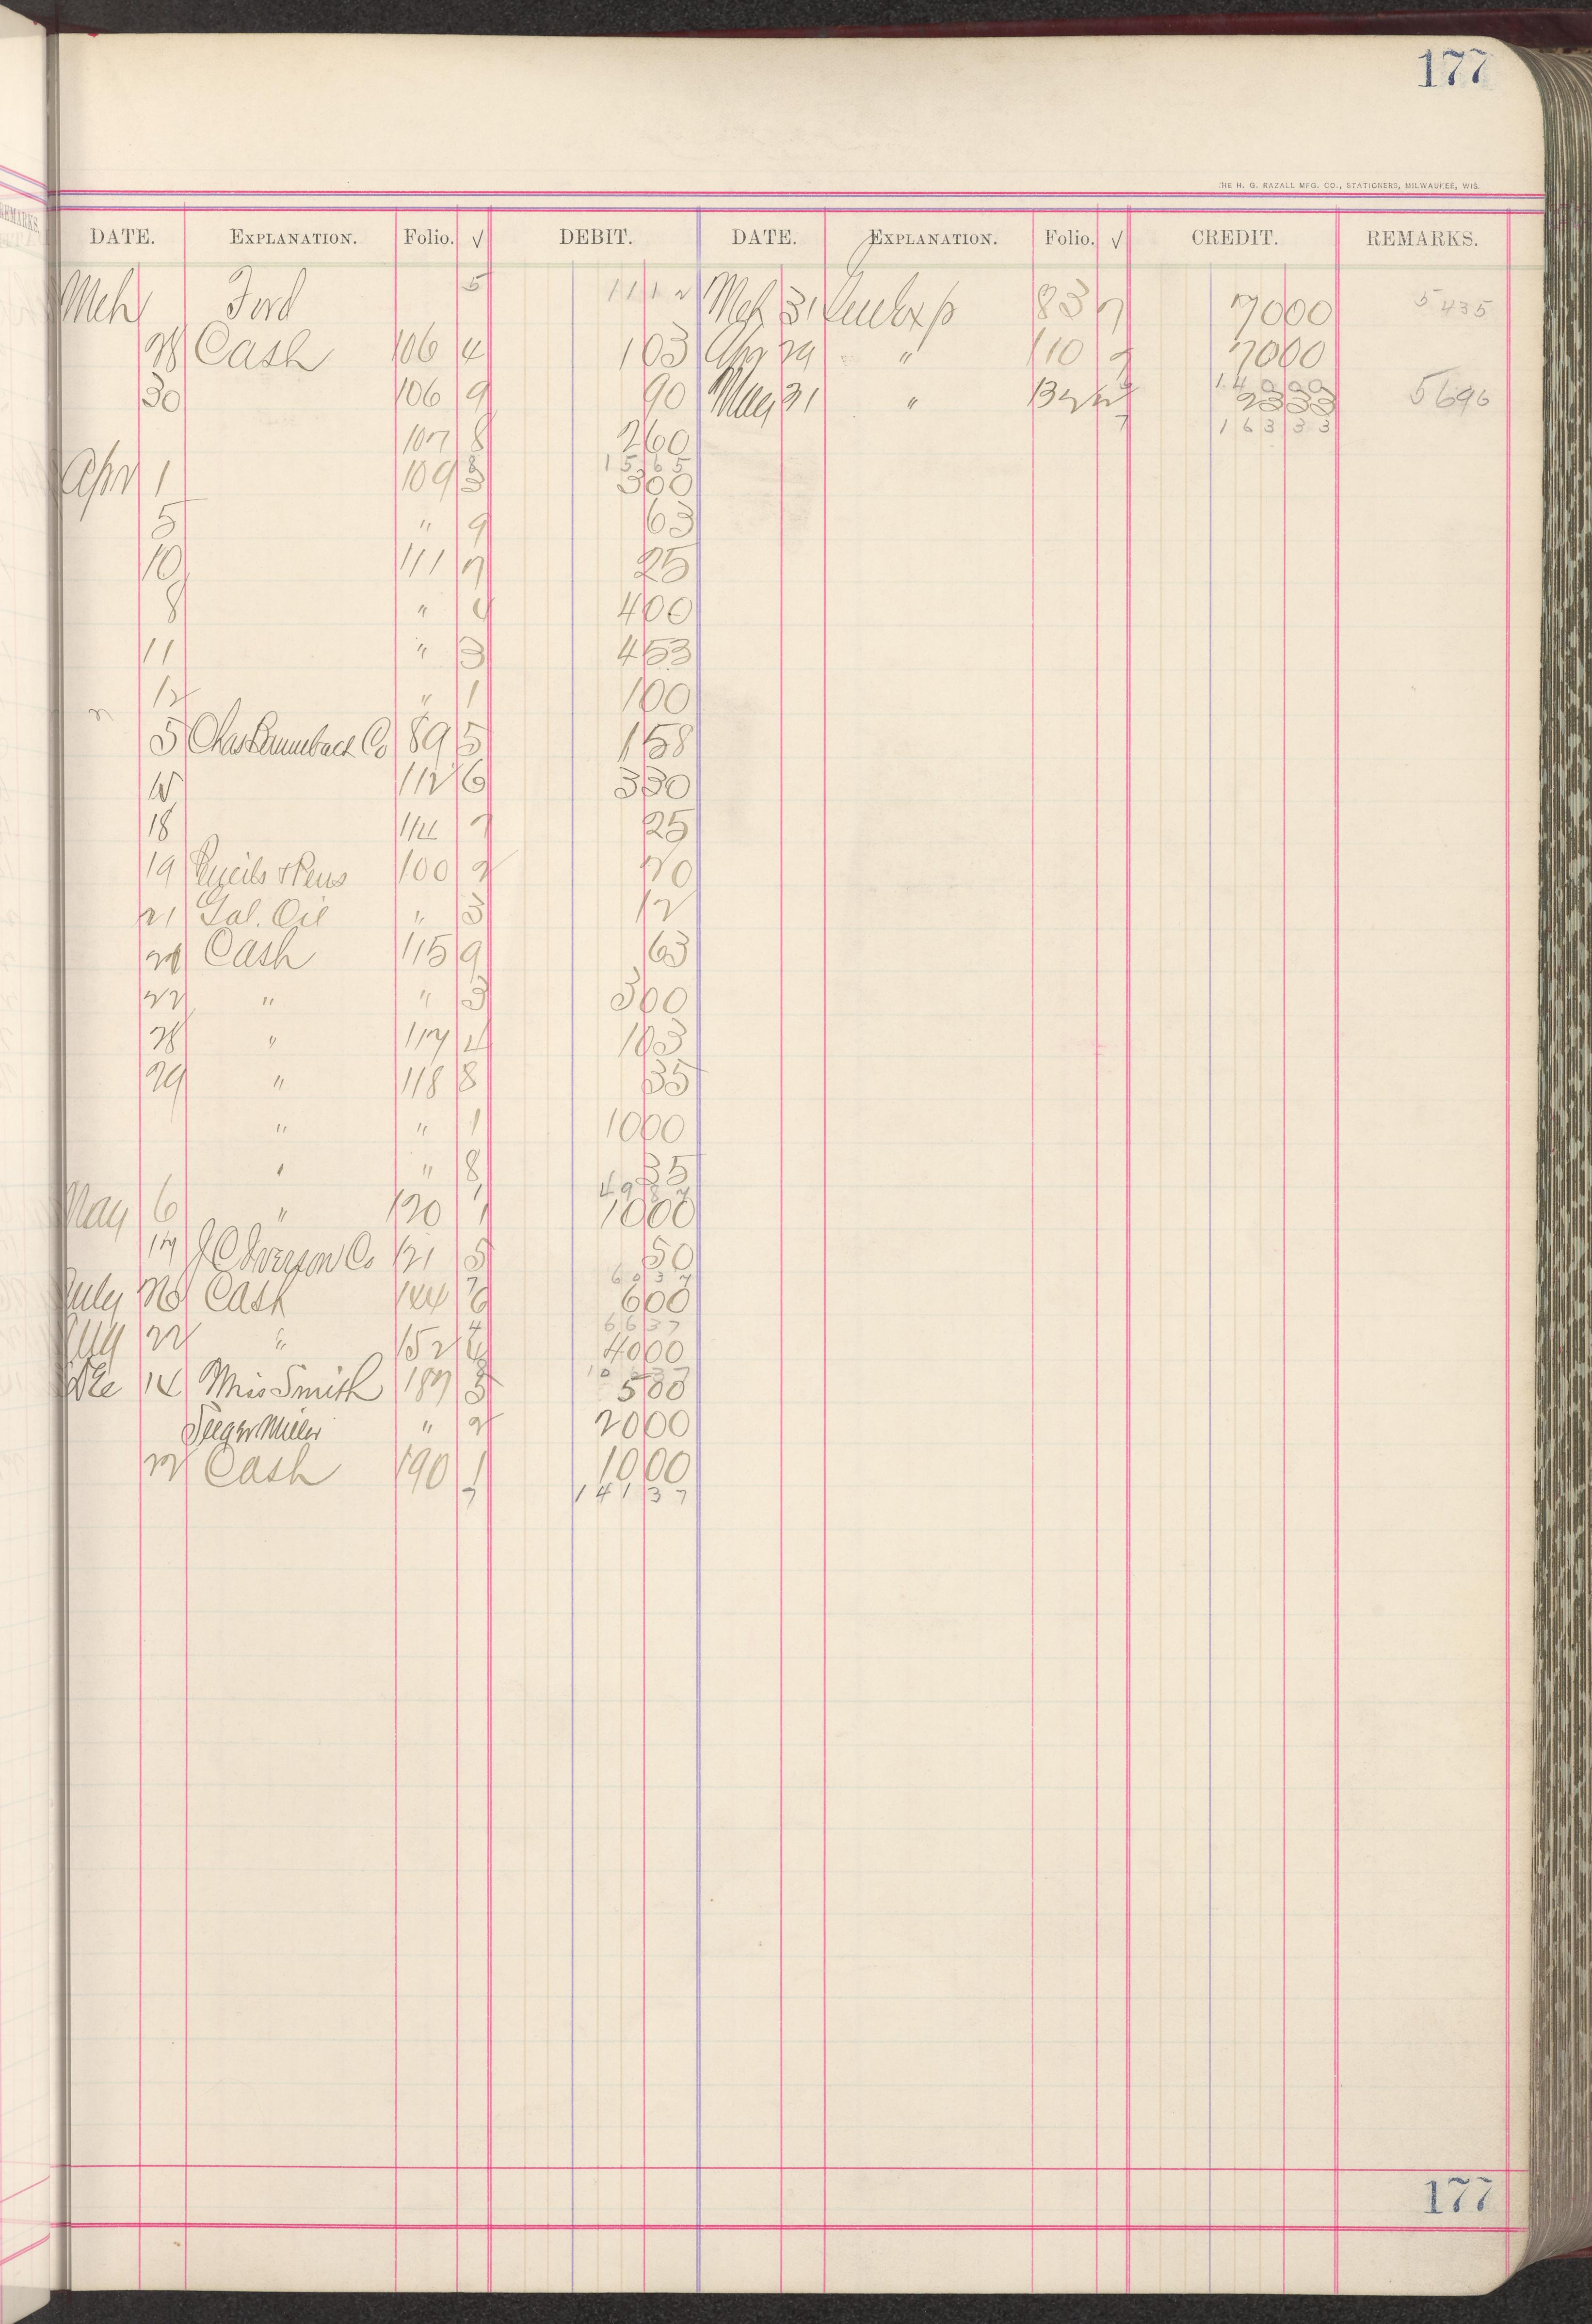 177
THE H. G. RAZALL MFG. CO., STATIONERS, MILWAUKEE, WIS.
DATE. EXPLANATION. Folio. √ DEBIT. DATE. EXPLANATION. Folio. √ CREDIT. REMARKS.
Mch Ford 5 1112 Mch 31 83 7 7000 5435
28 Cash 106 4 103 Apr 29 " 110 7 7000
30 106 9 90 May 31 " 132 2333 5696
14000
107 8 260 16333
1565
Apr 1 109 3 300
5 " 9 63
10 111 7 25
8 " 4 400
11 " 3 453
12 " 1 100
5 Chas Co 89 5 158
15 112 6 330
18 114 7 25
19 Pencils & Pens 100 2 70
21 Gal. Oil " 3 12
Cash 115 9 63
22 " " 3 300
28 " 117 4 103
29 " 118 8 35
" " 1 1000
" " 8 35
4987
May 6 " 120 1 1000
17 J C Iverson Co 121 5 50
6037
July 26 Cash 144 6 600
6637
Aug 22 " 152 4 4000
10637
Dec 14 Miss Smith 187 3 500
Seeger Miller " 2 2000
22 Cash 190 1 1000
14137
177